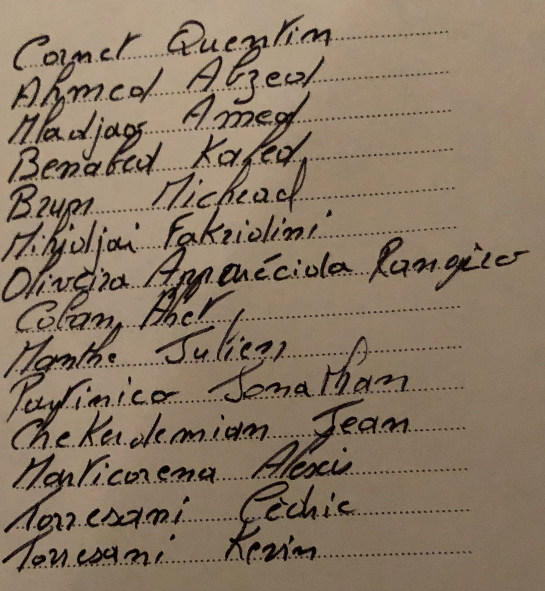 Cornet Quentin
Ahmed Abzed
Madjao Amed
Benabed Kaled
Brun Michead
Mihidjai Fakridini
Oliveira Apparécida Rangueo
Coban Ahet
Manthe Julien
Puytinica Jonathan
Chekerdemian Jean
Marticorena Aléxis
Torresani Cèdric
Torresani Kevin